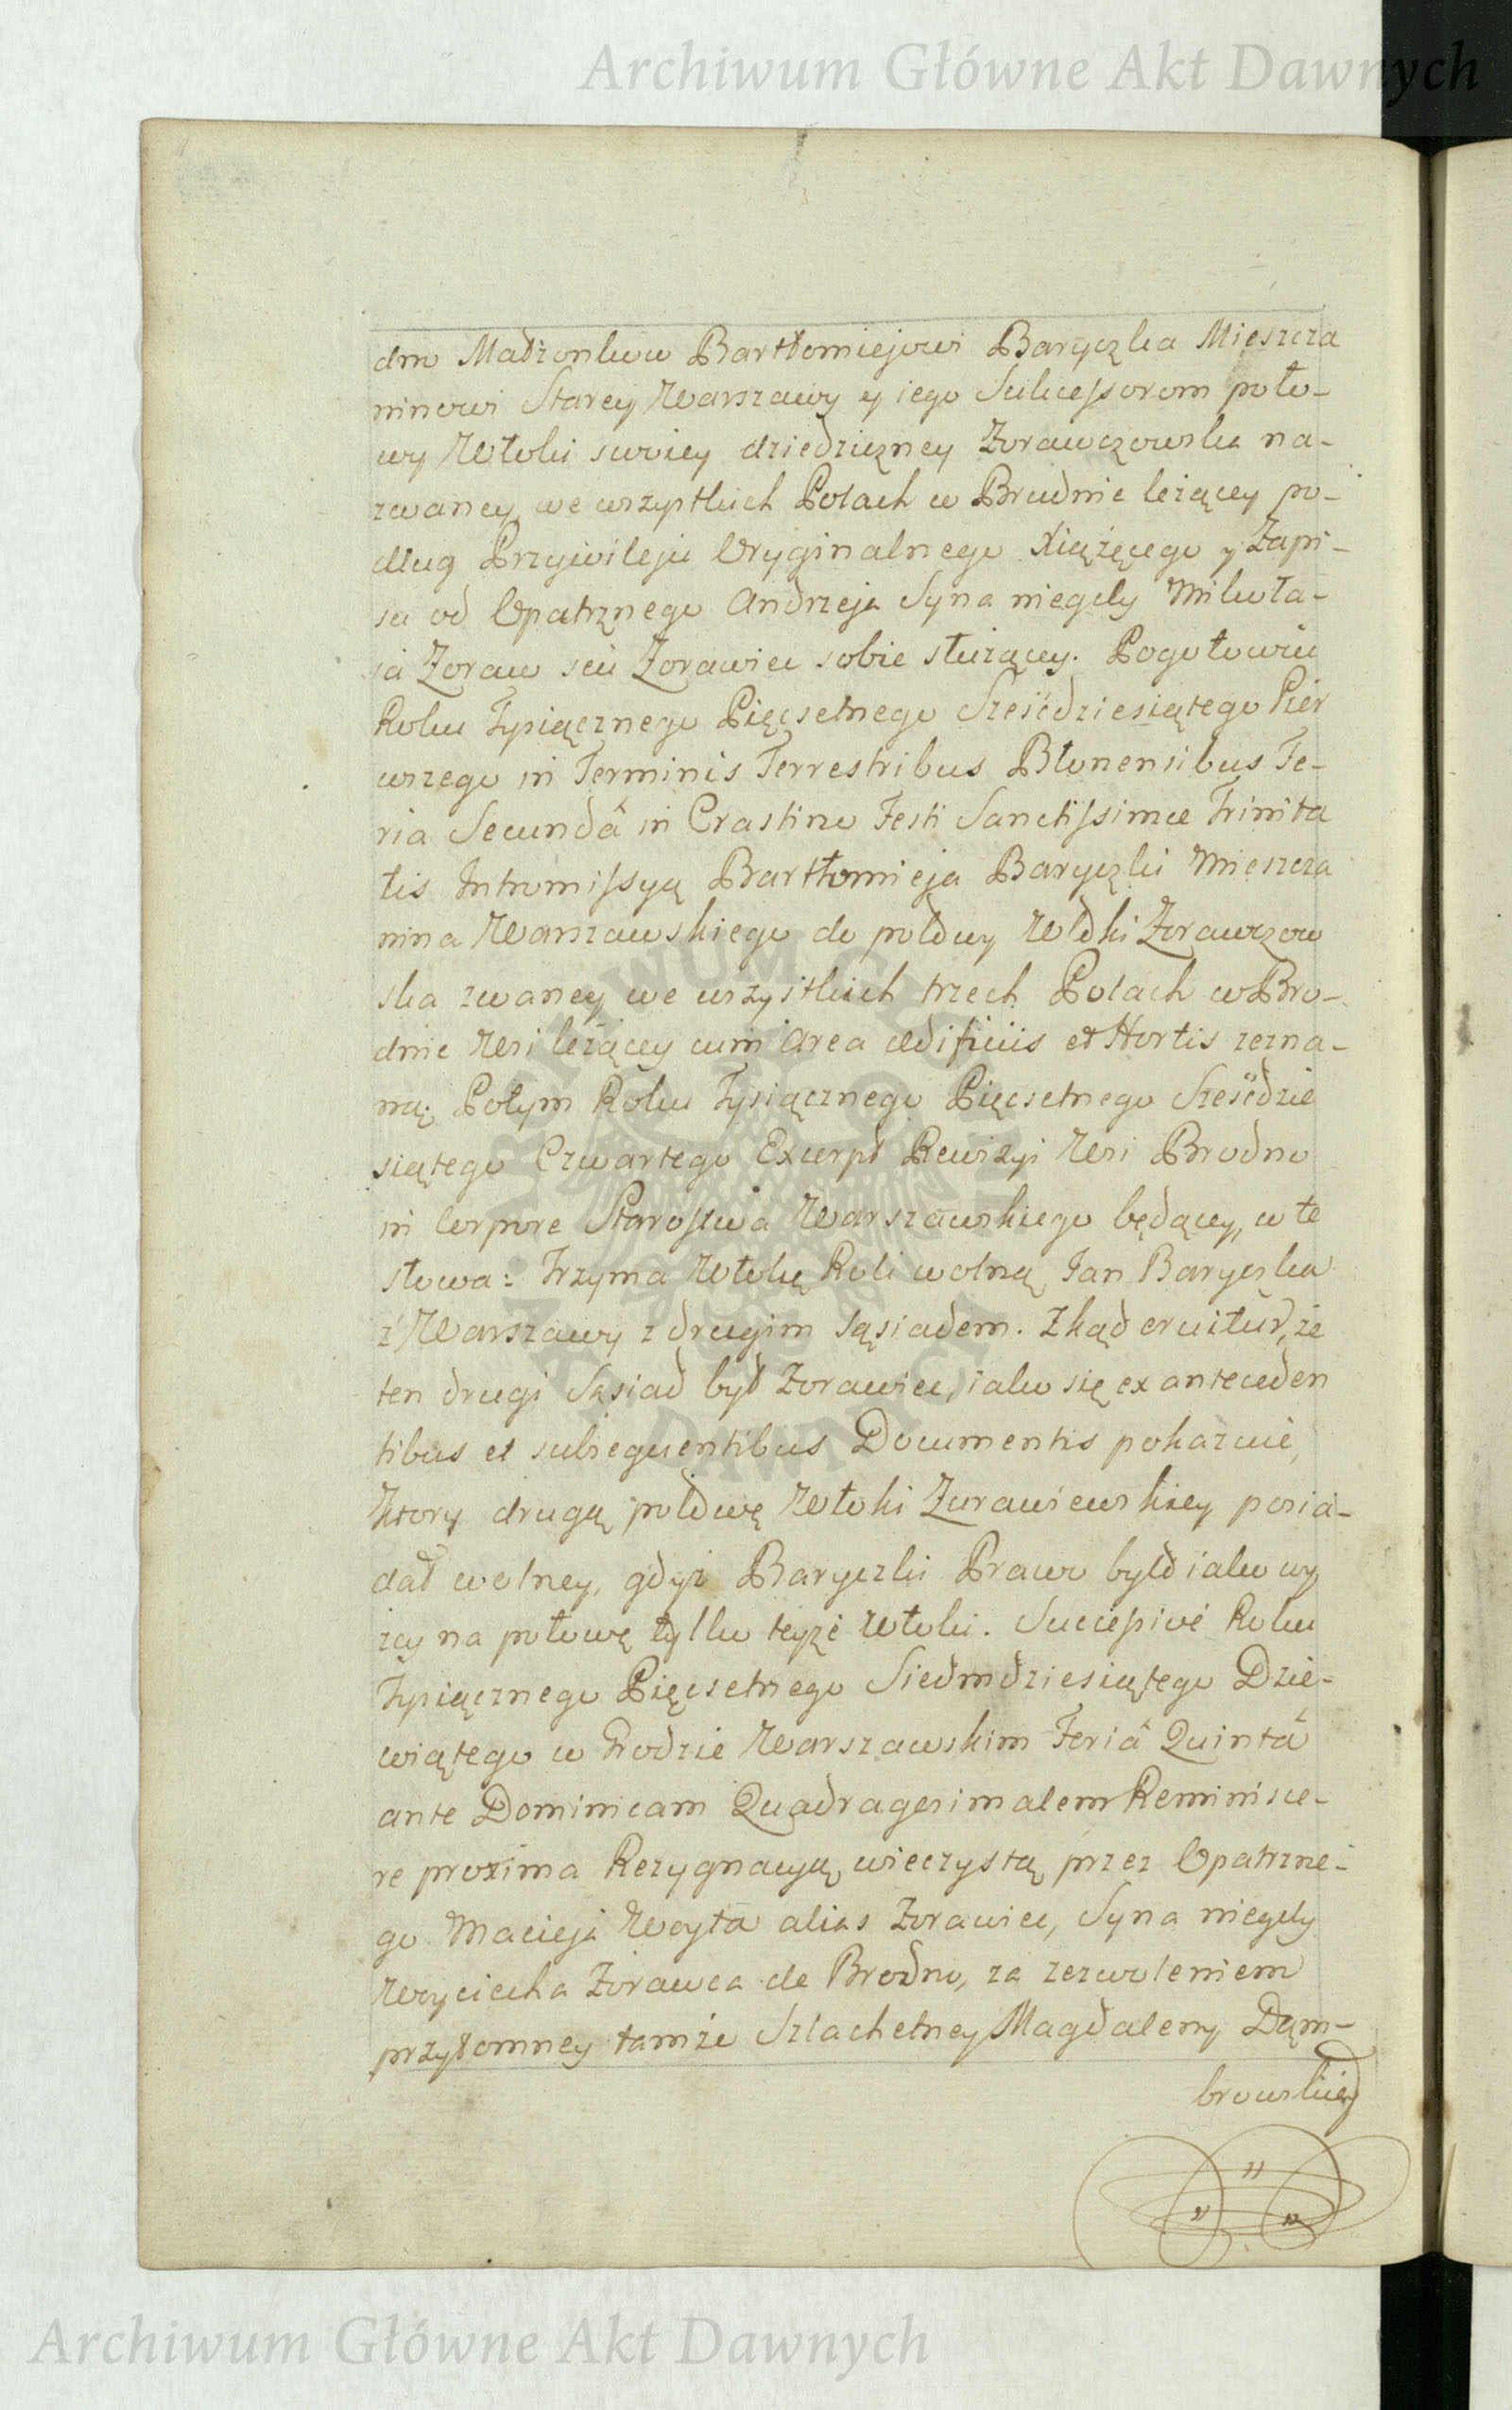 Archiwum Główne Akt Dawnych
dno Małżonkow Bartłomiejowi Baryczka Mieszcza
ninowi Starey Warszawy y iego Sukcessorom poło-
wy Włoki swoiey dziedziczney Zorawczowska na-
zwaney, we wszystkich Polach w Brudnie leżącey po-
dług Przywileju Oryginalnego Xiążęcego y Zapi-
su od Opatrznego Andrzeja Syna niegdy Mikoła-
ia Zoraw seu Zorawiec sobie służący. Pogotowiu
Roku Tysiącznego Pięcsetnego Sześćdziesiątego Pier
wszego in Terminis Terrestribus Błonensibus Fe-
ria Secundâ in Crastino Festi Sanctissimæ Trinita
tis Intromissyą Bartłomieja Baryczki Mieszcza
nina Warszawskiego do połowy Włoki Zorawczow
ska zwaney we wszystkich trzech Polach w Bro-
dnie Wsi leżącey cum area ædificiis et Hortis zezna-
ną; Potym Roku Tysiącznego Pięcsetnego Sześćdzie
siątego Czwartego Excerpt Rewizyi Wsi Brodno
in Corpore Starostwa Warszawskiego będącey, w te
słowa: Trzyma Włokę Roli wolną Jan Baryczka
z Warszawy z drugim sąsiadem. Zkąd eruitur, że
ten drugi Sąsiad był Zorawiec, iako się ex anteceden
tibus et subsequentibus Documentis pokazuie,
Ktory drugą połowę Włoki Zurawiewskiey posia-
dał wolney, gdyż Baryczki Prawo było iako wy
żey na połowę tylko teyże Włoki. Successivé Roku
Tysiącznego Pięcsetnego Siedmdziesiątego Dzie-
wiątego w Grodzie Warszawskim Feriâ Quintâ
ante Dominicam Quadragesimalem Reminisce-
re proxima Rezygnacyą wieczystą przez Opatrzne-
go Macieja Woyta alias Zorawiec, Syna niegdy
Woyciecha Zorawca de Brodno, za zezwoleniem
przytomney tamże Szlachetney Magdaleny Dąm-
browskiey
Archiwum Główne Akt Dawnych